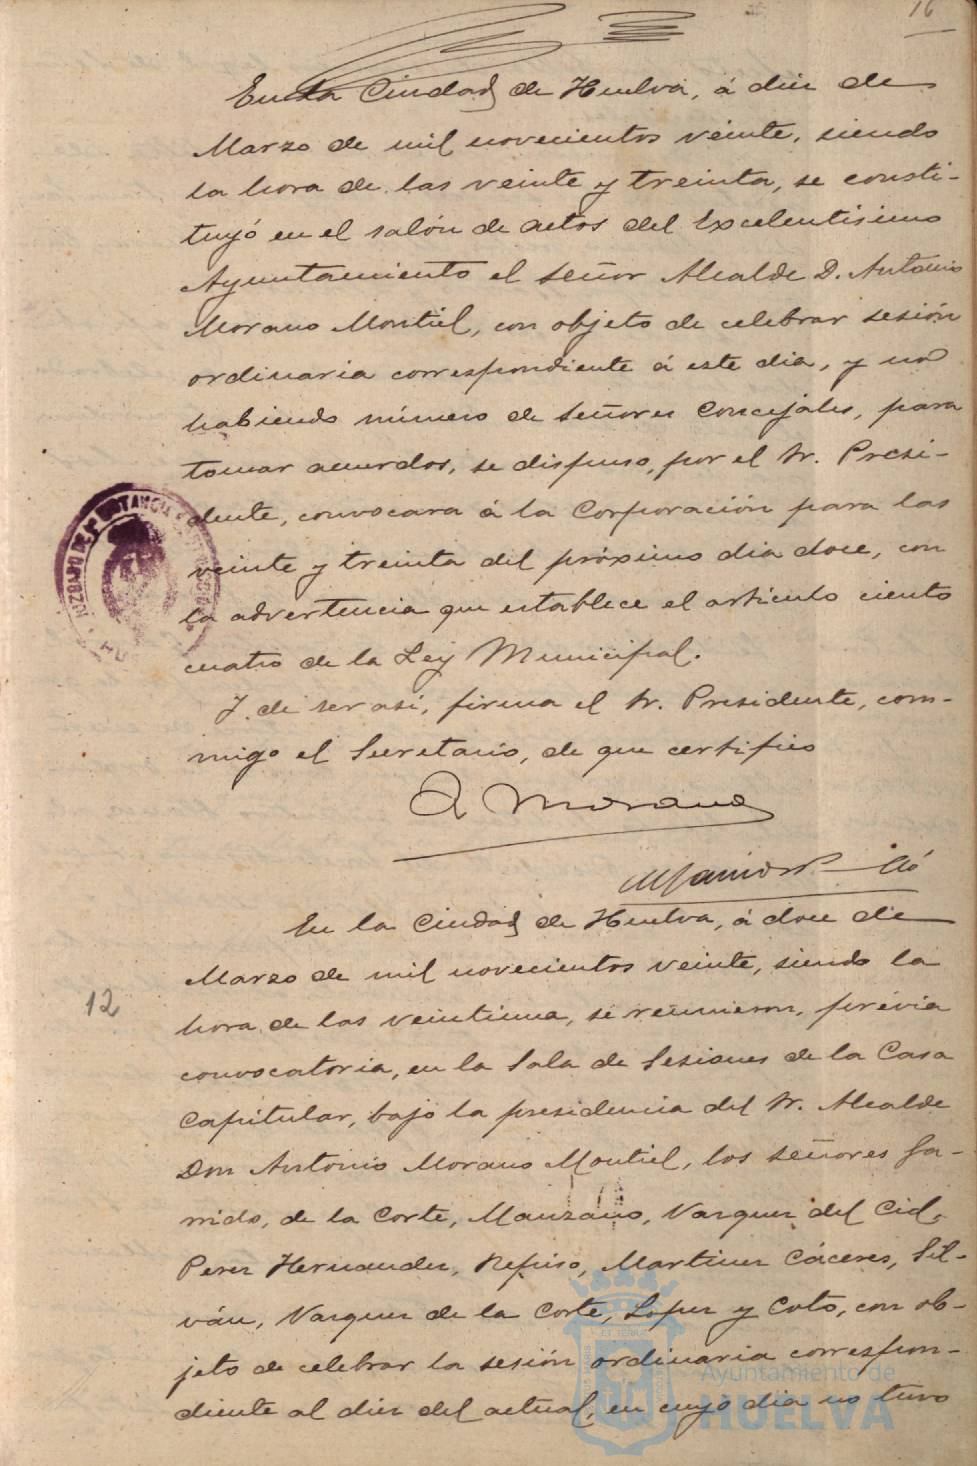 16
En la Ciudad de Huelva, á diez de
Marzo de mil novecientos veinte, siendo
la hora de las veinte y treinta, se consti-
tuyó en el salón de actos del Excelentisimo
Ayuntamiento el señor Alcalde D. Antonio
Morano Montiel, con objeto de celebrar sesión
ordinaria correspondiente á este dia, y no
habiendo número de señores Concejales, para
tomar acuerdos, se dispuso, por el Sr. Presi-
dente, convocara á la Corporación para las
veinte y treinta del próximo dia doce, con
la advertencia que establece el articulo ciento
cuatro de la Ley Municipal.
Y de ser asi, firma el Sr. Presidente, con-
migo el Secretario, de que certifico
A Morano
En la Ciudad de Huelva, á doce de
Marzo de mil novecientos veinte, siendo la
12
hora de las veintiuna, se reunieron, prévia
convocatoria, en la Sala de Sesiones de la Casa
Capitular, bajo la presidencia del Sr. Alcalde
Don Antonio Morano Montiel, los señores Ga-
rrido, de la Corte, Manzano, Vazquez del Cid,
Perez Hernandez, Refiso, Martinez Cáceres, Sil-
ván, Vazquez de la Corte, Lopez y Coto, con ob-
jeto de celebrar la sesión ordinaria correspon-
diente al diez del actual, en cuyo dia no tuvo
Ayuntamiento de
HUELVA